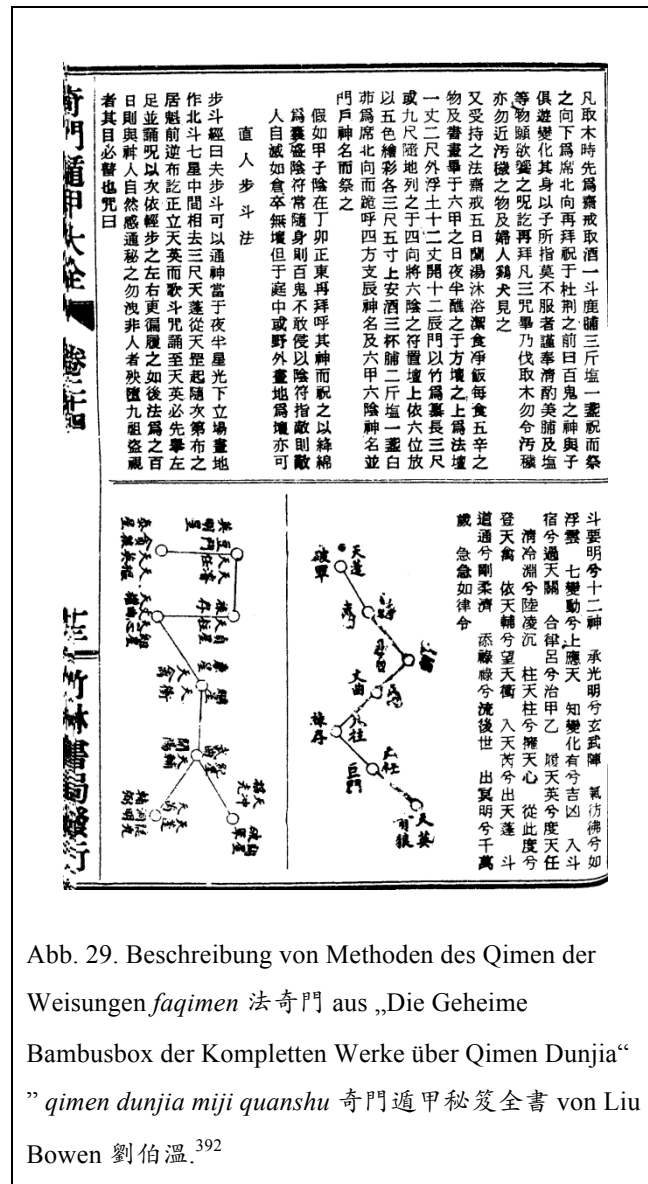 凡取木時先爲齋戒取酒一斗鹿脯三斤塩一盞祝而祭
之向下爲席北向再拜祝于杜荆之前曰百鬼之神與子
俱遊變化其身以子所指莫不服者謹奉清酌美脯及塩
等物願欲饗之呪訖再拜凡三呪畢乃伐取木勿令汚穢
亦勿近汚穢之物及婦人鷄犬見之
又受持之法齋戒五日蘭湯沐浴潔食凈飯每食五辛之
物及書畫畢于六甲之日夜半醮之于方壇之上爲法壇
一丈二尺外浮土十二丈開十二辰門以竹爲纂長三尺
或九尺隨地列之于四向將六陰之符置壇上依六位放
以五色繒彩各三尺五寸上安酒三杯脯二斤塩一盞白
茆爲席北向而跪呼四方支辰神名及六甲六陰神名並
門戶神名而祭之
假如甲子陰在丁卯正東再拜呼其神而祝之以絳綿
爲囊盛陰符常隨身則百鬼不敢侵以陰符指敵則敵
人自滅如倉卒無壇但于庭中或野外畫地爲壇亦可
直人步斗法
步斗經曰夫步斗可以通神當于夜半星光下立場畫地
作北斗七星中間相去三尺天蓬從天罡起隨次第布之
居魁前逆布訖正立天英而歌斗呪誦至天英必先舉左
足並誦呪以次依輕步之左右更徧履之如後法爲之百
日則與神人自然感通秘之勿洩非人者殃墮九祖盜視
者其目必瞽也咒曰
斗要明兮十二神 承光明兮玄武陣 氣彷彿兮如
浮雲 七變動兮上應天 知變化有兮吉凶 入斗
宿兮過天關 合律呂兮治甲乙 履天英兮度天任
清冷淵兮陸凌沉 柱天柱兮擁天心 從此度兮
登天禽 依天輔兮望天衝 入天芮兮出天蓬 斗
道通兮剛柔濟 添祿祿兮流後世 出冥明兮千萬
歲 急急如律令
天蓬
破軍
文曲
巨門
天任
天英
奇門遁甲大全
卷二十四
竹林書局發行
Abb. 29. Beschreibung von Methoden des Qimen der
Weisungen faqimen 法奇門 aus „Die Geheime
Bambusbox der Kompletten Werke über Qimen Dunjia“
” qimen dunjia miji quanshu 奇門遁甲秘笈全書 von Liu
Bowen 劉伯溫.392